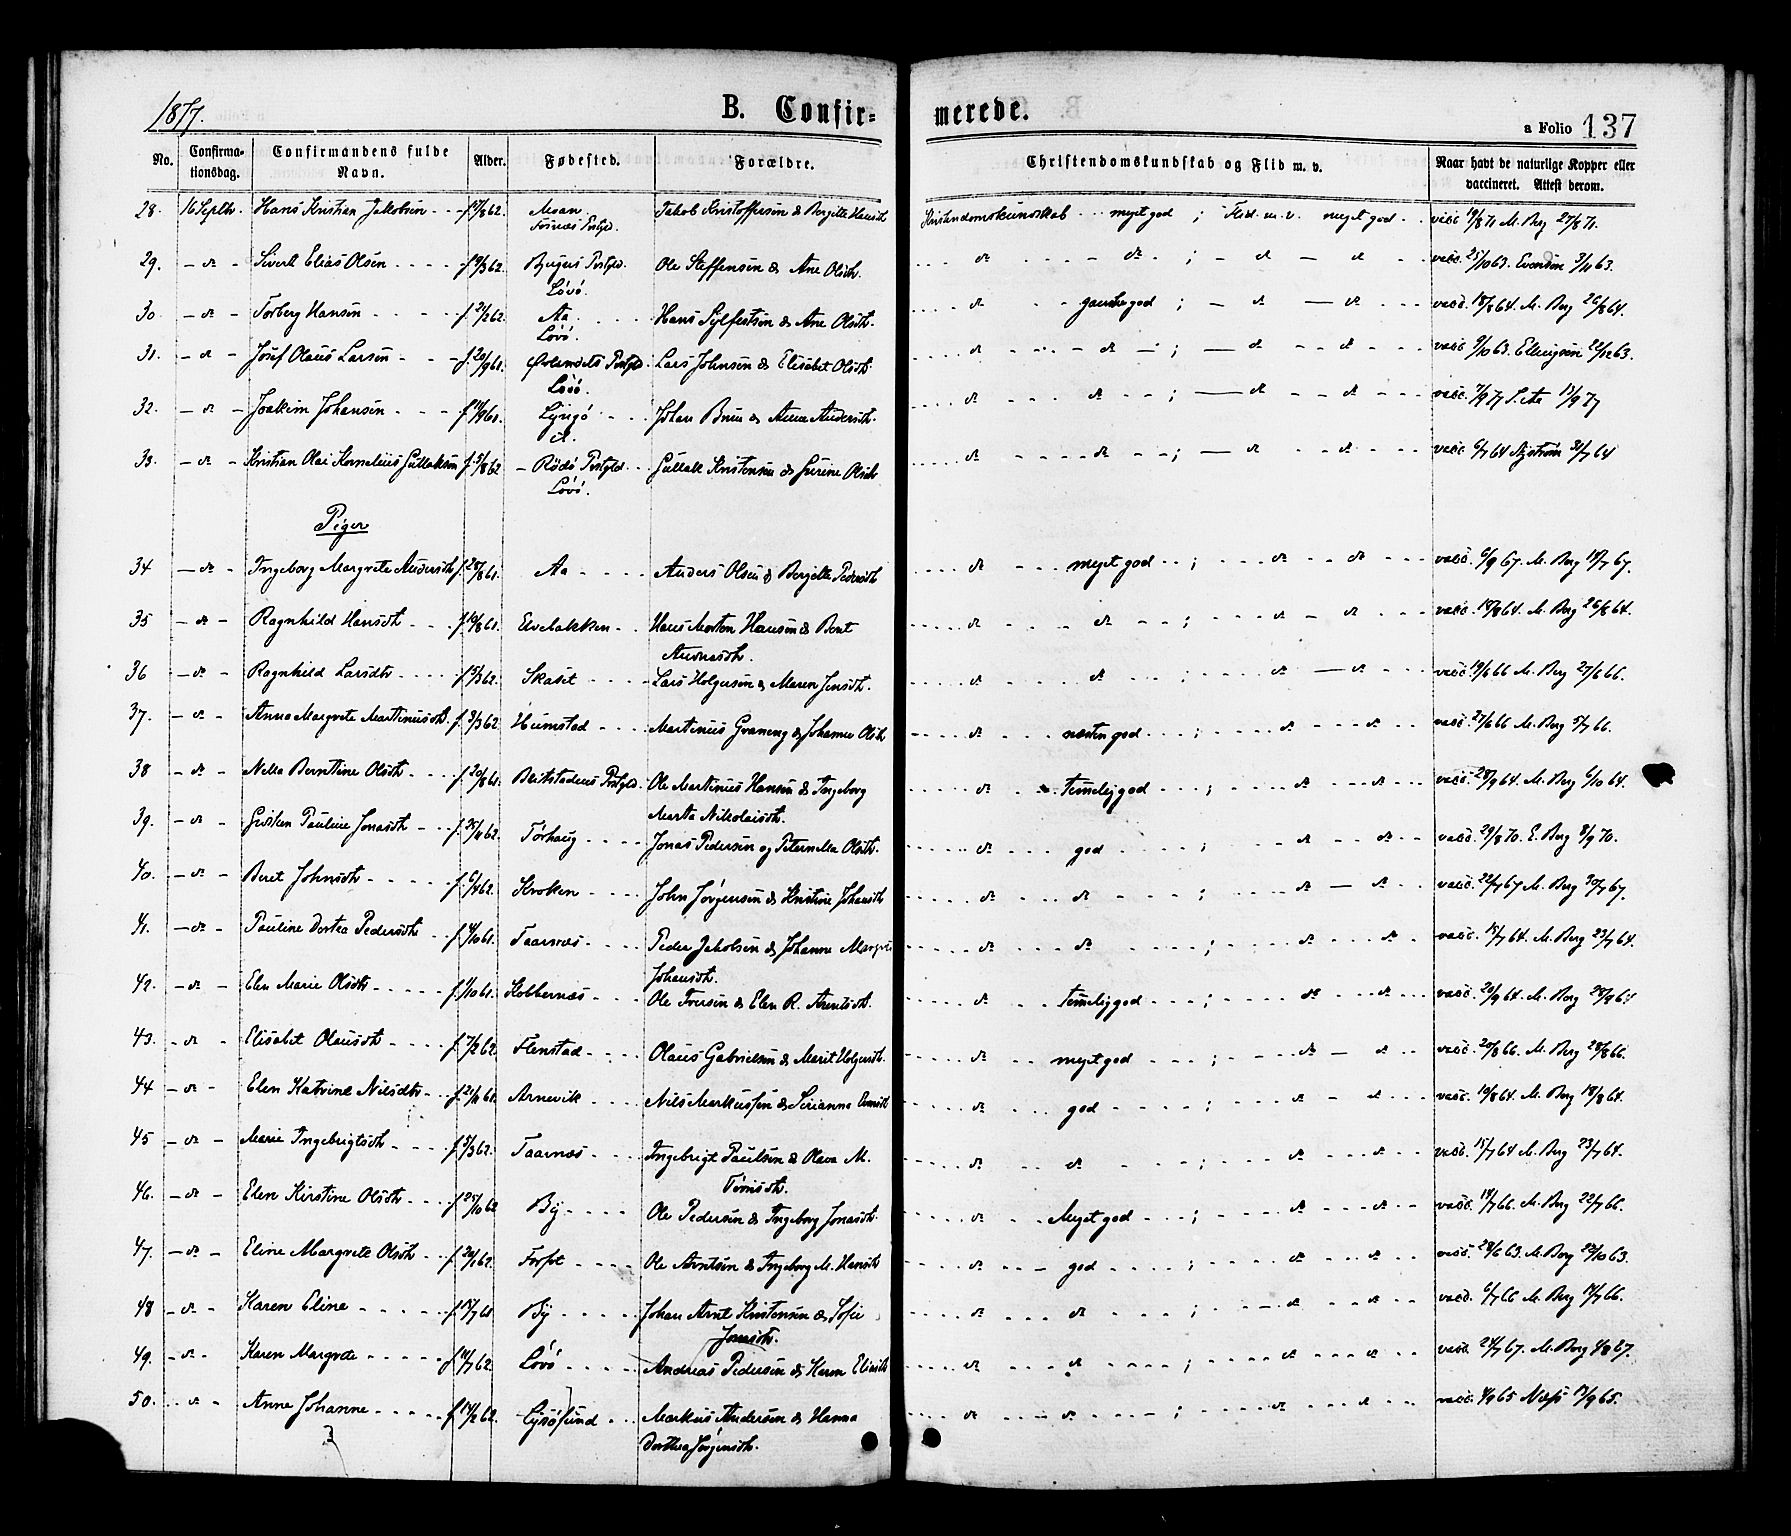 1877.
B. Confir=
merede.
a Folio 137
No. Confirma-tionsdag. Confirmandens fulde Navn. Alder. Fødested. Forældre. Christendomskundskab og Flid m. v. Naar havt de naturlige Kopper eller vaccineret. Attest derom.
28. 16 Septbr. Hans Kristian Jakobsen f. 62. Fosnæs Prstgld. Jakob Kristoffersen & Bergitte Hansdtr Kristendomskundskab meget god ; Flid m. v. meget god vacc. 19/8 71 M. Berg 27/8 71.
29. do Sivert Elias Olsen f. 9/3 62. Bjugns Prstgld. Løvø. Ole Steffensen & Ane Olsdtr. do do ; do do vacc. 25/10 63. Evensen 3/11 63.
30. do Torberg Hansen f. 2/2 62. Aa Løvø. Hans Sylfestsen & Ane Olsdtr. do ganske god ; do do vacc. 18/8 64. M. Berg 26/8 64.
31. do Josef Olaus Larsen f. 20/9 61. Ørlandets Prstgld. Løvø. Lars Johnsen & Elisabet Olsdtr do do ; do do vacc. 9/10 63. Ellingsen 22/12 63.
32. do Joakim Johansen f. 61. Lyngø do Johan Bruu & Anna Andersdtr. do do ; do do vacc. 7/9 77 13/9 77
33. do Kristian Olai Kornelius Gullaksen f. 5/8 62 Rødø Prstgld. Løvø. Gullak Kristensen & Gurine Olsdtr do do ; do do vacc. 6/7 64 31/7 64
Piger
34 do Ingeborg Margrete Andersdtr f. 28/8 61. Aa Anders Olsen & Bergitte Pedersdtr do meget god ; do do vacc. 6/9 67. M. Berg 67.
35 do Ragnhild Hansdtr f. 10/8 61. Elvebakken Hans Morten Hansen & Berit
Andreasdtr. do do ; do do vacc. 18/8 64. M. Berg 26/8 64.
36 do Ragnhild Larsdtr f. 15/3 62. Skaset Lars Holgersen & Maren Jensdtr. do do ; do do vacc. 19/6 66 M. Berg 27/6 66.
37. do Anna Margrete Martinusdtr. f. 3/3 62. Humstad Martinus Graneng & Johanna Olsdtr do næsten god ; do do vacc. 27/6 66 M. Berg 5/7 66.
38 do Nella Berntine Olsdtr f. 20/8 61. Beitstadens Prstgld. Ole Martinus Hansen & Ingeborg
Marta Nikolaisdtr. do temelig god ; do do vacc. 28/9 64. M. Berg 6/10 64.
39. do Gidsken Pauline Jonasdtr f. 62. Torhaug Jonas Pedersen og Peternella Olsdtr. do god ; do do vacc. 29/8 70. E. Berg 8/9 70.
40. do Beret Johnsdtr f. 6/4 62. Kroken John Jørgensen & Kristine Johansdtr do do ; do do vacc. 22/7 67 M. Berg 30/7 67.
41. do Pauline Dortea Pedersdtr f. 61. Taarnæs Peder Jakobsen & Johanna Margrete
Johansdtr. do do ; do do vacc. 15/7 64. M. Berg 23/7 64.
42. do Elen Marie Olsdtr f. 61. Kobbernæs Ole Iversen & Elen R. Arentsdtr. do temelig god ; do do vacc. 20/9 64. M. Berg 28/9 64
43. do Elisabet Olausdtr f. 7/2 62. Flenstad Olaus Gabrielsen & Marit Holgersdtr. do meget god ; do do vacc. 20/8 66. M. Berg 28/8 66.
44 do Elen Katrine Nilsdtr f. 61. Arnevik Nils Markussen & Sirianna do god ; do do vacc. 10/8 64. M. Berg 18/8 64.
45 do Marie Ingebrigtsdtr f. 5/3 62. Taarnæs Ingebrigt Paulsen & Olava M.
do do ; do do vacc. 15/7 64 M. Berg 23/7 64.
46. do Elen Kirstine Olsdtr f. 25/10 62 By Ole Pedersen & Ingeborg Jonasdtr. do Meget god ; do do vacc. 14/7 66. M. Berg 22/7 66.
47. do Eline Margrete Olsdtr f. 20/1 62. Forfot Ole Arntsen & Ingeborg M. Hansdtr do god ; do do vacc. 63. M. Berg 22/10 63.
48 do Karen Eline f. 61 By Johan Arnt Kristensen & Sofie
Jonasdtr. do do ; do do vacc. 6/7 66 M. Berg 14/7 66.
49. do Karen Margrete f. 62. Løvø Andreas Pedersen & Karen Eliasdtr do do ; do do vacc. 24/7 67. M. Berg 67.
50. do Anne Johanne f. 14/2 62. Lysøsund Markus Andersen & Hanna
Dorthea Jørgensdtr. do do ; do do vacc. 4/9 65 Næss 13/9 65.